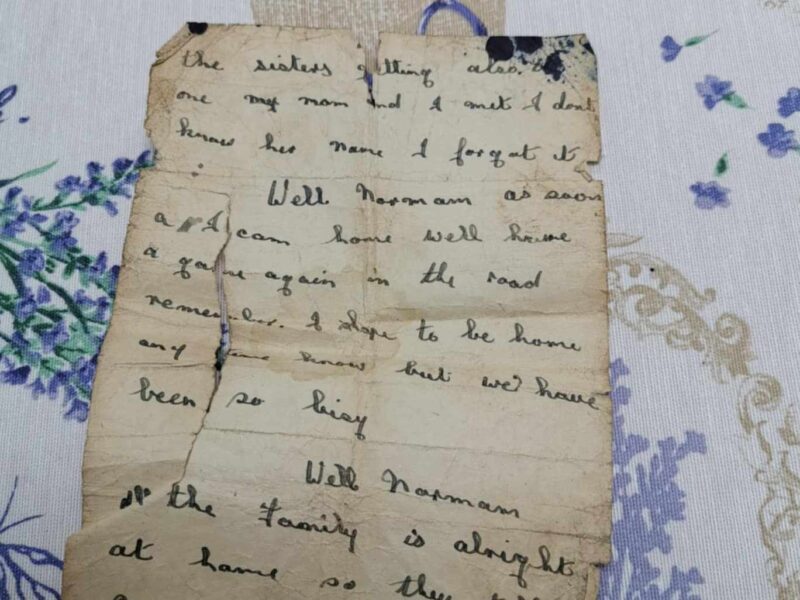 the sisters getting also
one my mom and I met I dont
know her name I forgot it
Well Normam as soon
a I cam home well have
a game again in the road
remember. I hope to be home
any time know but we have
been so bisy
Well Normam
the family is alright
at home so they